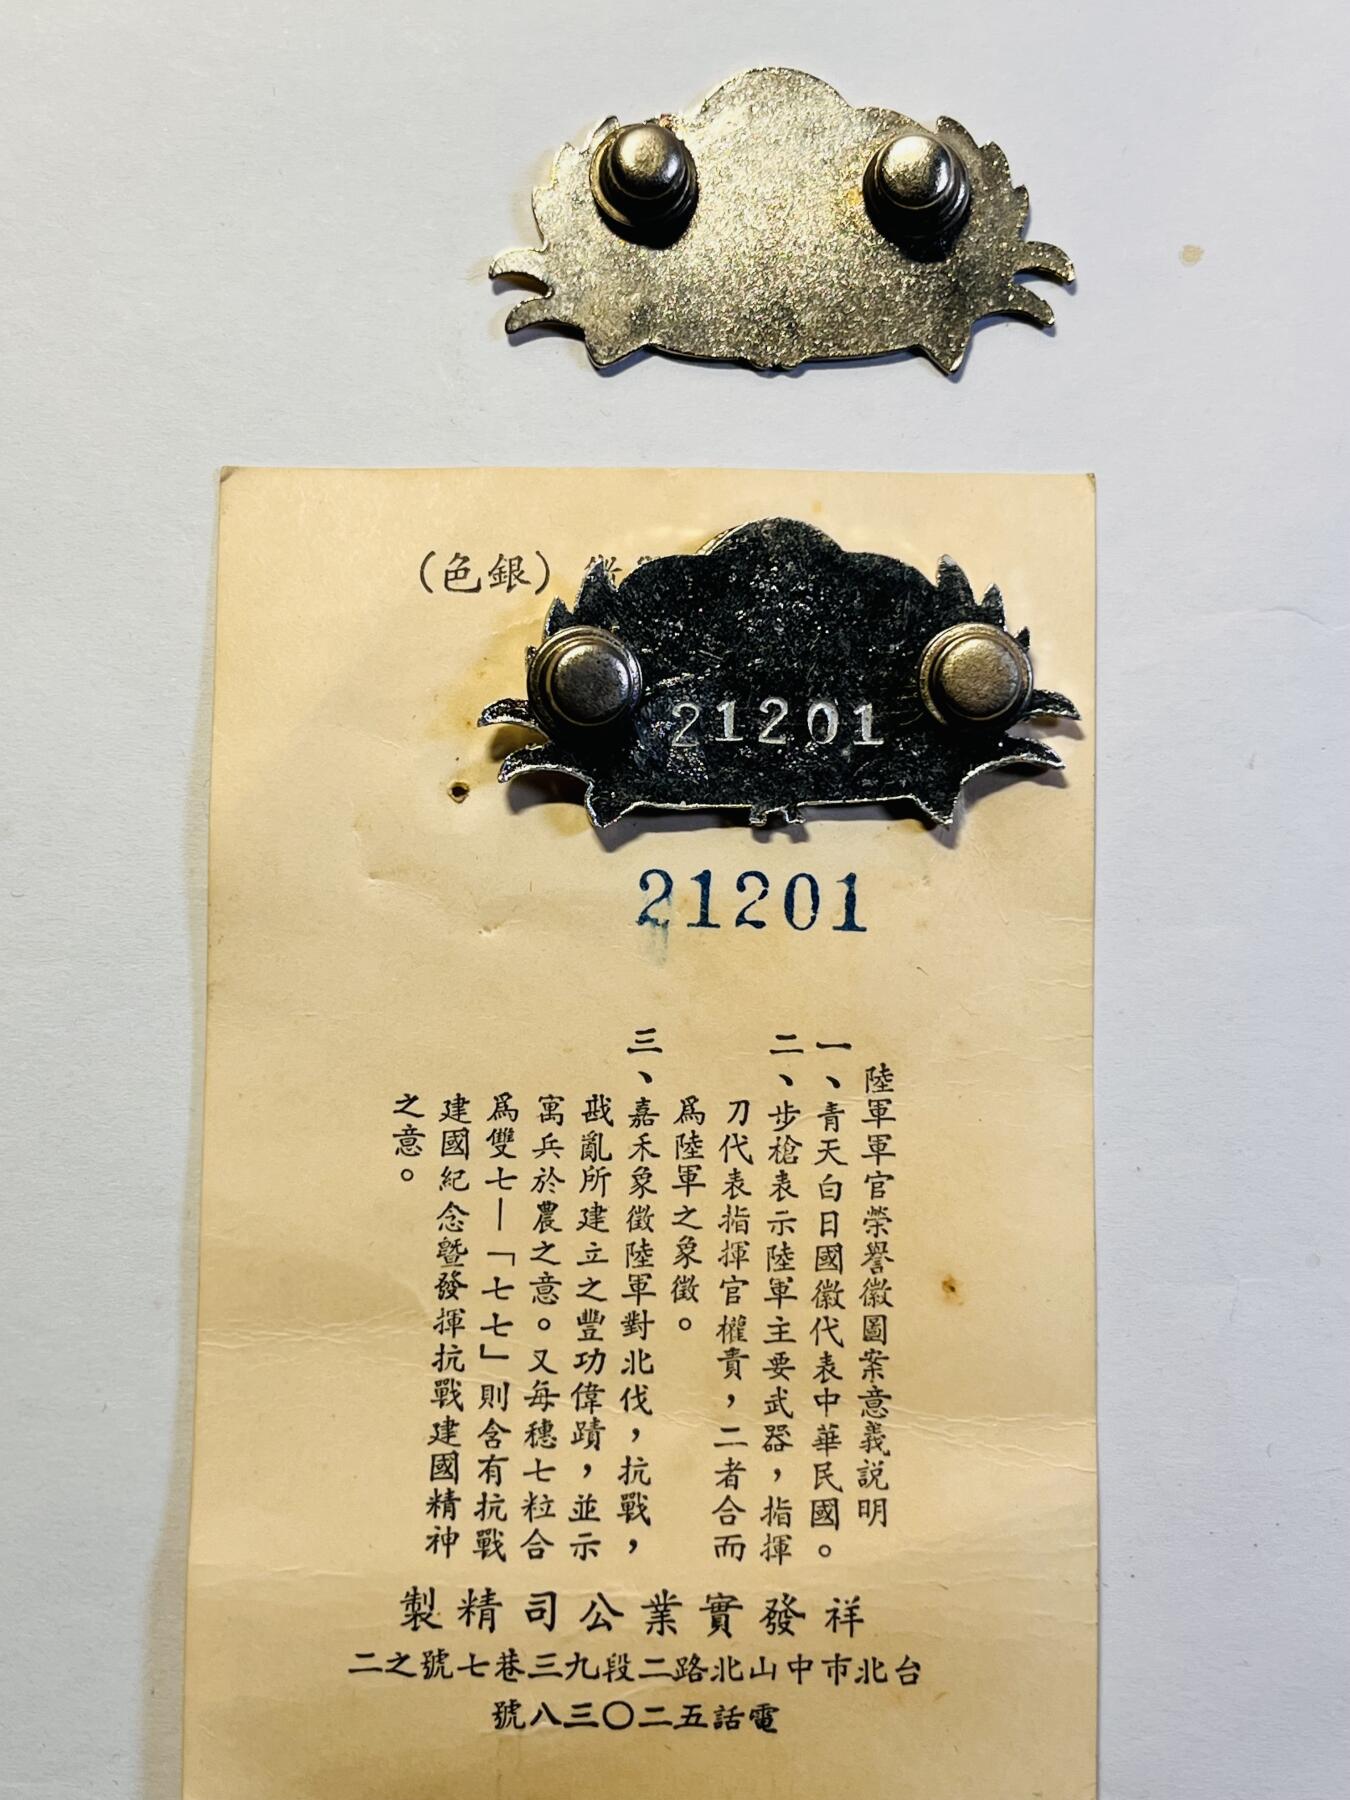 （銀色）
21201
21201
陸軍軍官榮譽徽圖案意義説明
一、青天白日國徽代表中華民國。
二、步槍表示陸軍主要武器，指揮
刀代表指揮官權責，二者合而
爲陸軍之象徵。
三、嘉禾象徵陸軍對北伐，抗戰，
戡亂所建立之豐功偉蹟，並示
寓兵於農之意。又每穗七粒合
爲雙七—「七七」則含有抗戰
建國紀念暨發揮抗戰建國精神
之意。
祥發實業公司精製
台北市中山北路二段九三巷七號之二
電話五二〇三八號